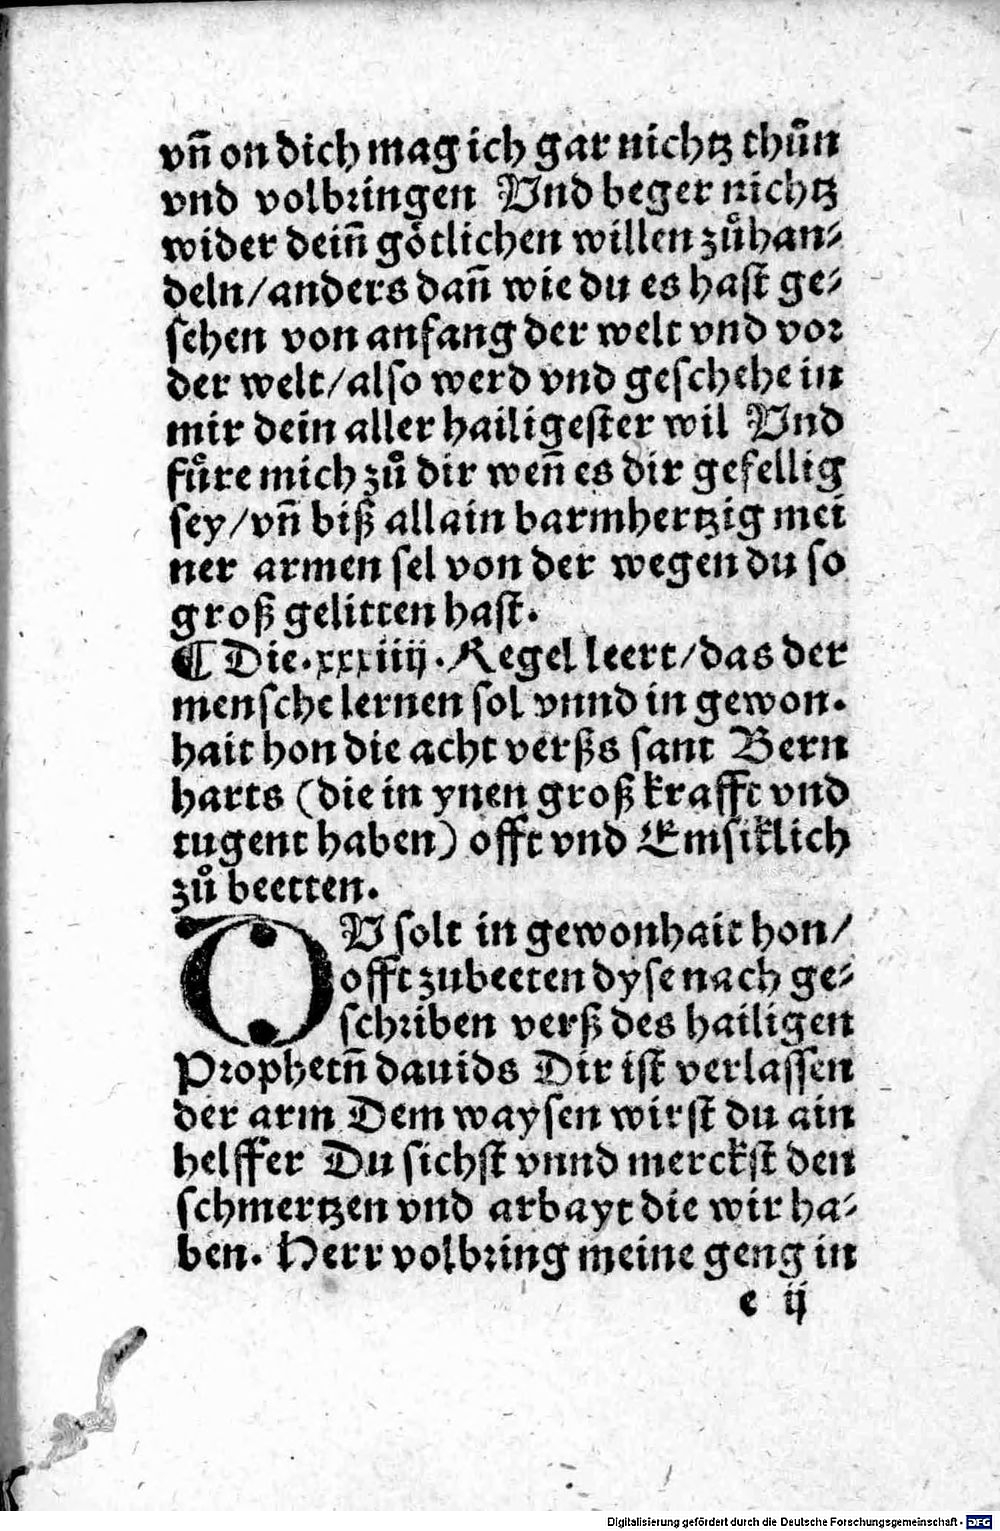 vñ on dich mag ich gar nichtz thůn
vnd volbringen Vnd beger nichtz
wider deiñ götlichen willen zůhan⸗
deln/anders dañ wie du es hast ge⸗
sehen von anfang der welt vnd vor
der welt/also werd vnd geschehe in
mir dein aller hailigester wil Vnd
fůre mich zů dir weñ es dir gefellig
sey/vñ biß allain barmhertzig mei
ner armen sel von der wegen du so
groß gelitten hast.
¶ Die .xxxiiij. Regel leert/das der
mensche lernen sol vnnd in gewon.
hait hon die acht verßs sant Bern
harts (die in ynen groß krafft vnd
tugent haben) offt vnd Emsiklich
zů beetten.
DV solt in gewonhait hon/
offt zubeeten dyse nach ge⸗
schriben verß des hailigen
Prophetñ dauids Dir ist verlassen
der arm Dem waysen wirst du ain
helffer Du sichst vnnd merckst den
schmertzen vnd arbayt die wir ha⸗
ben. Herr volbring meine geng in
e ij
Digitalisierung gefördert durch die Deutsche Forschungsgemeinschaft - DFG